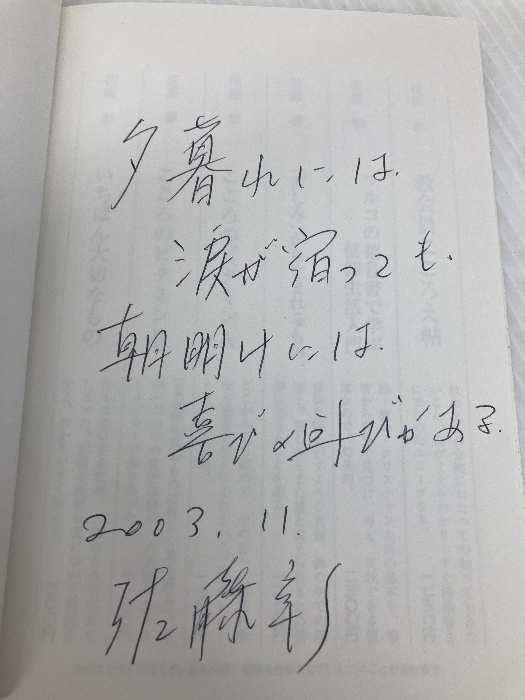 夕暮れには、
涙が宿っても、
朝明けには、
喜びの叫びがある。
2003.11.
佐藤彰